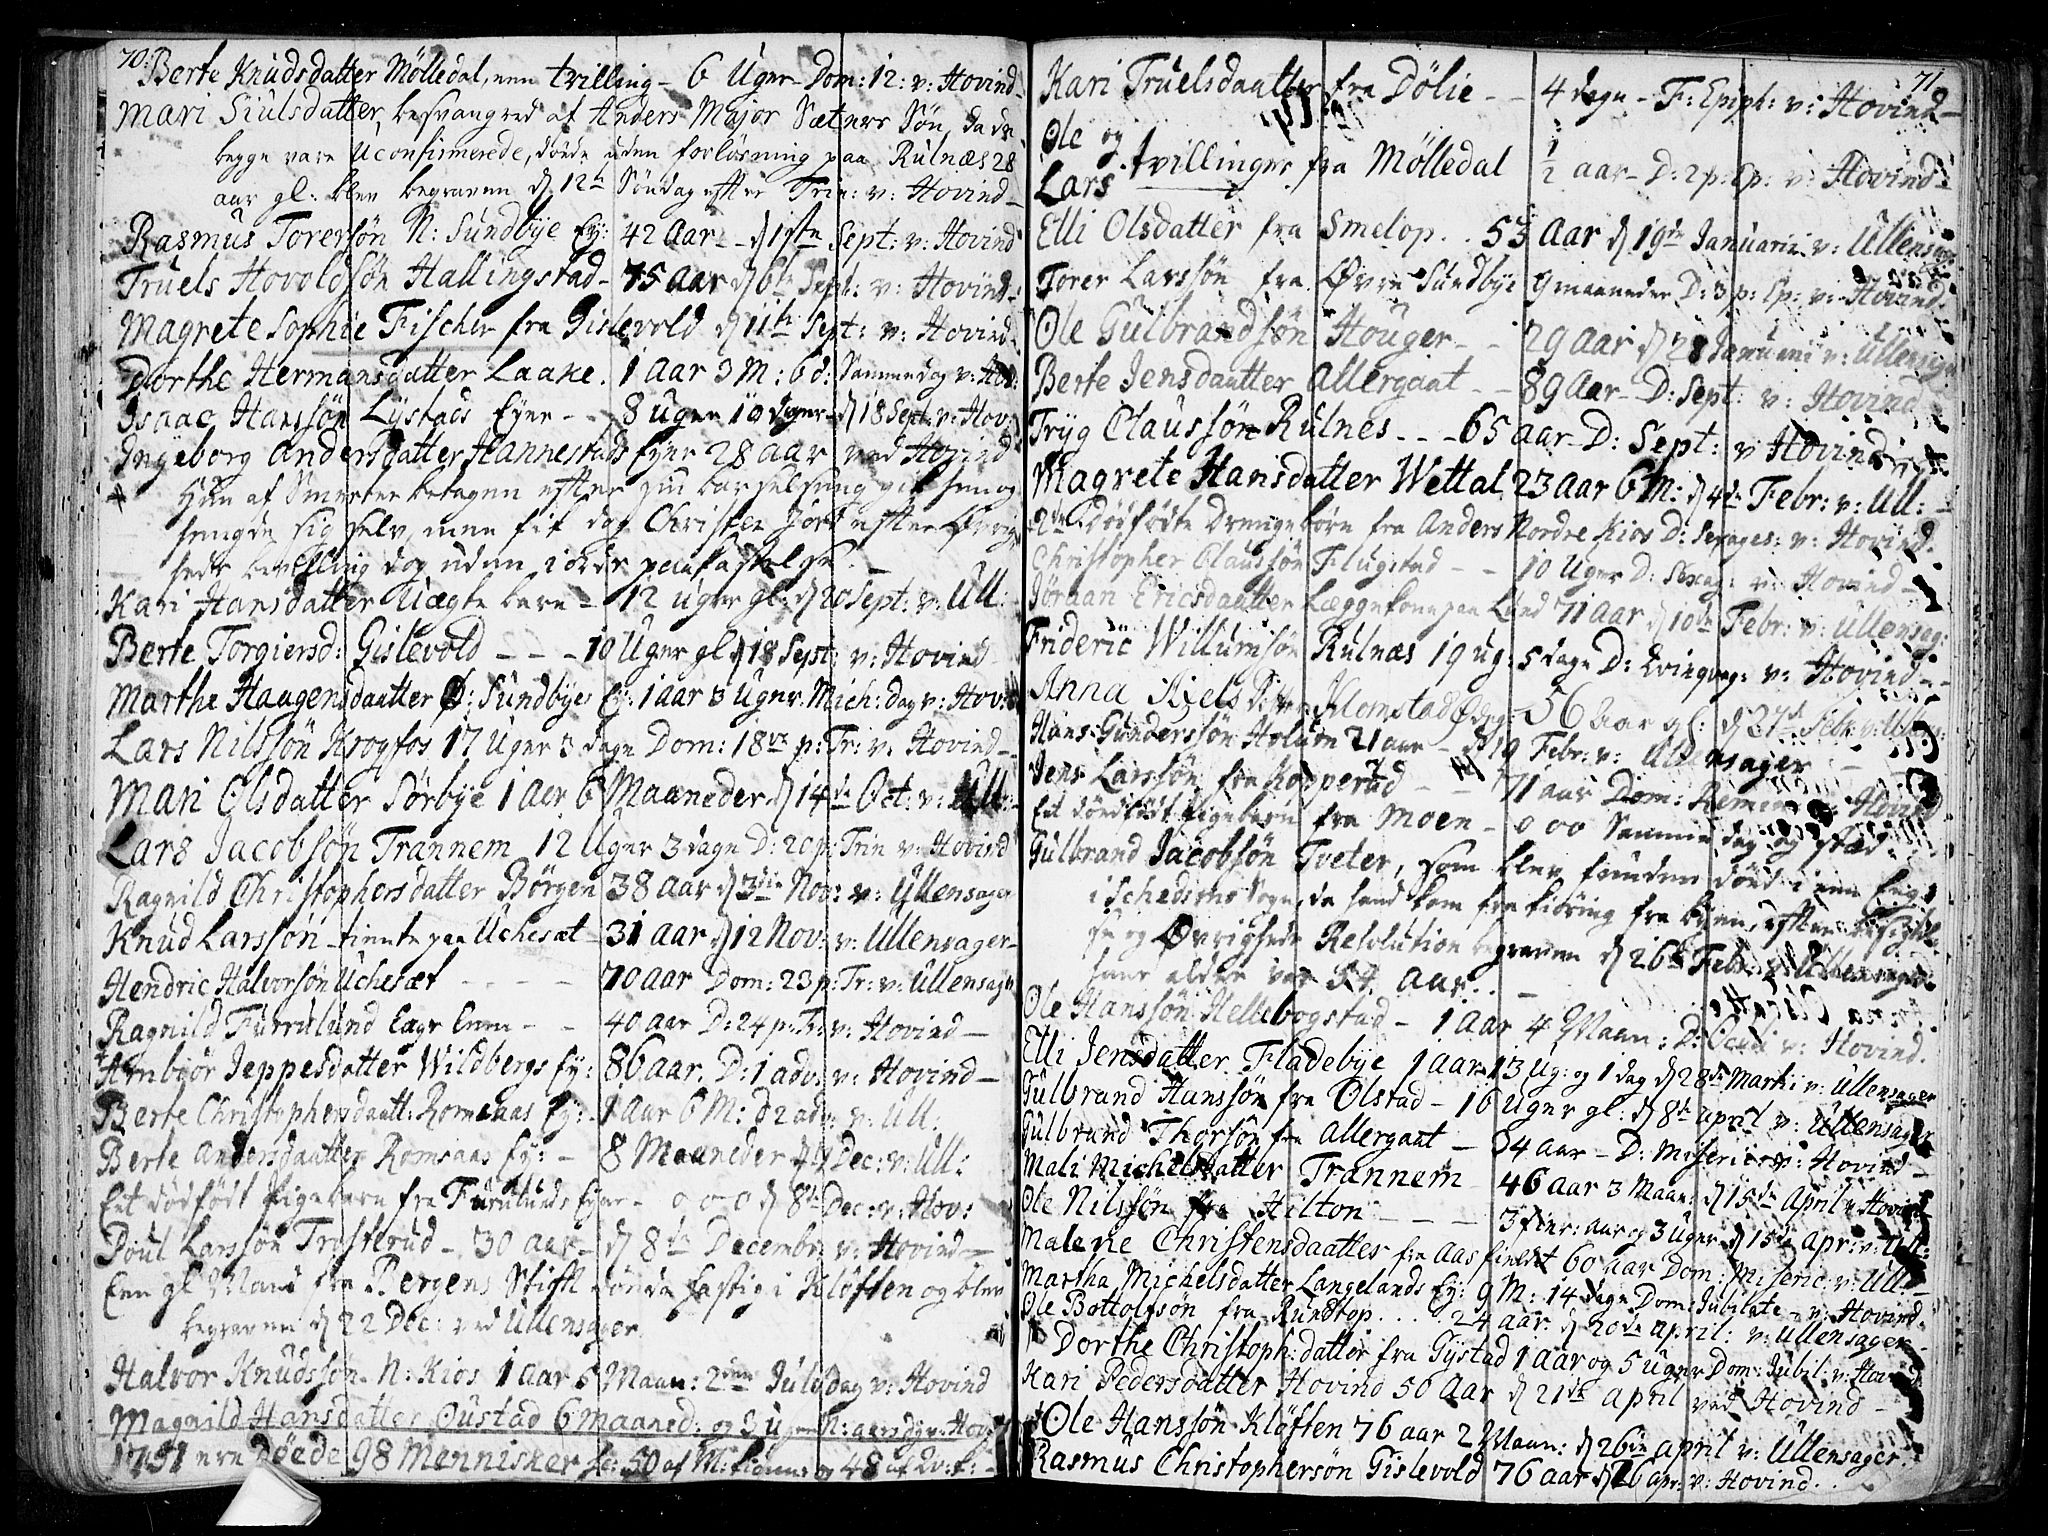 70.
Berte Knudsdatter Mölledal, een tvilling - 6 Uger - Dom: 12: v: Hovind -
Mari Siulsdatter, besvangred af Anders Major Sæters Sön, da de
begge vare Uconfirmerede, döde uden forlösning paa Rulnæs 28
aar gl: blev begraven d 12te Söndag efter Trin: v: Hovind -
Rasmus Torersön N: Sundbye Ey: 42 Aar - d 1ste Sept: v: Hovind
Truels Hovoldsön Hallingstad - 75 aar d 6te Sept: v: Hovind -
Magrete Sophie Fischer fra Gislevold d 11te Sept: v: Hovind -
Dorthe Hermansdatter Laake. 1 aar 3 M: 6 d: Samme dag v: Hov:
Isaac Hanssön Lystads Eyer - 8 uger 10 dager - d 18 Sept: v: Hov:
Ingeborg Andersdatter Hannestads Eyer 28 aar ved Hovind
Hun af Smerter betagen efter sin barselseng gik hen og
hengde sig selv, men fik dog Christen Jord efter Övrig-
heds bevilling dog uden jords paakastelse. -
Kari Hansdatter Uægte barn - 12 uger gl: d 20 Sept: v: Ull:
Berte Torgiersd: Gislevold - - - 10 Uger gl d 18 Sept: v: Hovind
Marthe Haagensdaatter Ö: Sundbye Ey: 1 aar 3 uger. Mich: dag v: Hov:
Lars Nilssön Krogfos 17 Uger 3 dage Dom: 18 p: Tr: v: Hovind -
Mari Olsdatter Sörbye 1 aar 6 Maaneder d 14de Oct: v: Ull:
Lars Jacobsön Trannem 12 Uger 3 dage D: 20 p: Trin v: Hovind
Ragnild Christophersdatter Börgen 38 aar d 3die Nov: v: Ullensager
Knud Larssön - tiente paa Uchesæt - 31 aar d 12 Nov: v: Ullensager -
Hendric Halvorsön Uchesæt - - - - 70 aar Dom: 23 p: Tr: v: Ullensager
Ragnild Furrulund Lægs Lem - - 40 aar D: 24 p: Tr: v: Hovind -
Arnbiör Jeppesdatter Wildbergs Ey: 86 aar. D: 1 adv: v: Hovind -
Berte Christophersdaatt: Romsaas Ey: 1 aar 6 M: D 2 adv: v: Ull.
Berte Andersdaatter Romsaas Ey: - 8 Maaneder d Dec: v: Ull:
Eet dödfödt Pigebarn fra Furulunds Eyer - 0 0 0 d 8te Dec: v: Hov:
Poul Larssön Trysterud - 30 aar - d 8de Decembr: v: Hovind -
Een gl Mand fra Bergens Stift döde hastig i Klöften og blev
begraven d 22 Dec: ved Ullensager
Halvor Knudssön N: Kios 1 aar 6 Maan: 2den Juledag v: Hovind
Magnild Hansdatter Oustad 6 Maaned: og 3 uger N: aarsdag v: Hov:
1751 ere döede 98 Mennisker sc: 50 af M: kiönn: og 48 af Qv: k: -
71.
Kari Truelsdaatter fra Dölie - - 4 dage - F: Epiph: v: Hovind -
Ole og
Lars tvillinger fra Mölledal 1/2 aar - D: 2 p: Ep: v: Hovind -
Elli Olsdatter fra Smelop . . 53 Aar d 19de Januarii v: Ullensager
Torer Larssön fra Övre Sundbye 9 maaneder D: 3 p: Ep: v: Hovind
Ole Gulbrandsön Houger - - 29 aar d 28 Januarii v: Ullensager
Berte Jensdaatter Allergaat - - 89 Aar - D: Sept: v: Hovind
Tryg Claussön Rulnes - - - 65 aar - D: Sept: v Hovind
Magrete Hansdatter Wettal 23 aar 6 M: d 4de Febr: v: Ull: -
2de dödfödte Drengebörn fra Anders Nordre Kios D: Sexages: v: Hovind.
Christopher Claussön Flugstad - - 10 Uger D: Sexag: v: Hovind -
Jöraan Ericsdaatter Læggekone paa Lund 71 aar d 10de Febr: v: Ullensag:
Frideric Willumsön Rulnæs 19 ug: 5 dage D: Qvinqvag: v: Hovind -
Anna Axels D: Klomstad Ödeg: - 56 Aar gl: d 27de Febr: v: Ullens:
Hans Gunderssön Holum 21 aar - d 19 Febr: v: Ullensager
Jens Larssön fra Kopperud - - 71 aar Dom: Remin: v: Hovind
Eet dödfödt Pigebarn fra Moen - 0 0 0 Samme dag og Stæd
Gulbrand Jacobsön Tveter, som blev funden död i een Eng
i Schedsmo Sogn, da hand kom fra kiöring fra byen, efter
og Övrigheds Resolution begraven d 26de Febr: v: Ullensager
hans alder var 54 aar. . -
Ole Hanssön Hellebogstad - 1 aar 4 Maan: D: Oculi v: Hovind.
Elli Jensdatter Fladebye 1 aar 13 Ug: og 1 dag d 28de Marti v: Ullensager
Gulbrand Hanssön fra Olstad - 16 Uger gl: d 8de april v: Ullensager
Gulbrand Thorsön fra Allergaat - 34 aar - D: Misericor: v: Hovind -
Mali Michelsdatter Trannem - 46 aar 3 Maan: d 15de April v: Hovind -
Ole Nilssön fra Hilton - - - 3 fier: aar og 3 uger d 15de Apr: v: Ull:
Malene Christensdaatter fra Aas fieldet 60 aar Dom: Miseric: v: Ull:
Martha Michelsdatter Langelands Ey: 9 M: 14 dage Dom: Jubilate - v: Hovind.
Ole Bottolfsön fra Rundtop . . . . 24 aar. d 20de april: v: Ullensager -
Dorthe Christoph: datter fra Gystad 1 aar og 5 uger Dom: Jubil: v: Hovind
Kari Pedersdatter Hovind 50 Aar d 21de April ved Hovind -
Ole Hanssön Klöften 76 aar 2 Maan: d 26de april v: Ullensager.
Rasmus Christophersön Gislevold 76 aar d 26 apr: v: Hovind. .